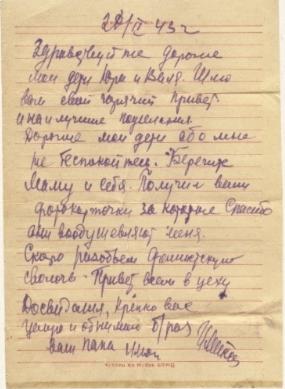 43 г
Здравствуйте дорогие
мои дети Юра и Ваня. Шлю
вам свой горячий привет
и наилучшие пожелания
Дорогие мои дети обо мне
не беспокойтесь. Берегите
маму и себя. Получил ваши
фотокарточки за которые спасибо
они воодушевляют меня.
Скоро разобьем
сволочь. Привет всем
Досвидания, крепко вас
целую и обнимаю раз
ваш папа